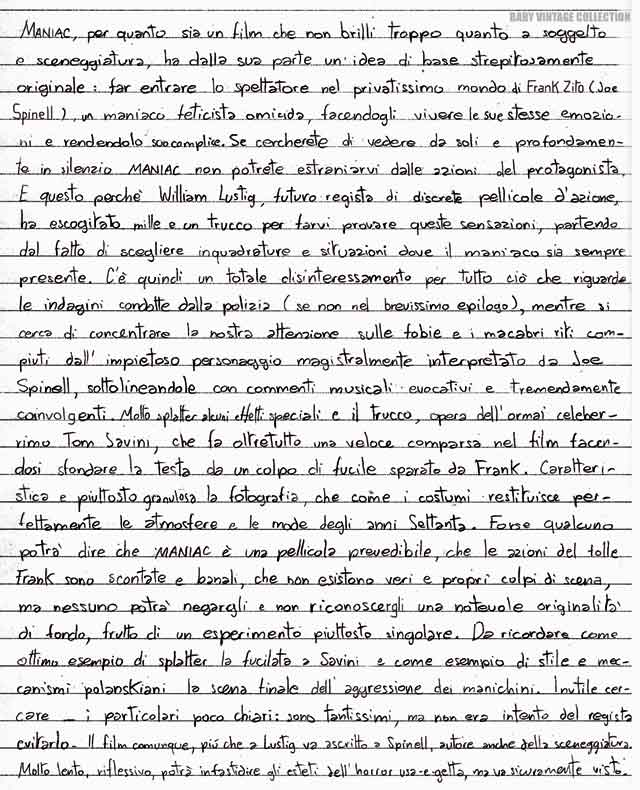 BABY VINTAGE COLLECTION
MANIAC, per quanto sia un film che non brilli troppo quanto a soggetto
e sceneggiatura, ha dalla sua parte un'idea di base strepitosamente
originale: far entrare lo spettatore nel privatissimo mondo di Frank Zito (Joe
Spinell), un maniaco feticista omicida, facendogli vivere le sue stesse emozio-
ni e rendendolo suo complice. Se cercherete di vedere da soli e profondamen-
te in silenzio MANIAC non potrete estraniarvi dalle azioni del protagonista.
E questo perchè William Lustig, futuro regista di discrete pellicole d'azione,
ha escogitato mille e un trucco per farvi provare queste sensazioni, partendo
dal fatto di scegliere inquadrature e situazioni dove il maniaco sia sempre
presente. C'è quindi un totale disinteressamento per tutto ciò che riguarda
le indagini condotte dalla polizia (se non nel brevissimo epilogo), mentre si
cerca di concentrare la nostra attenzione sulle fobie e i macabri riti com-
piuti dall'impietoso personaggio magistralmente interpretato da Joe
Spinell, sottolineandole con commenti musicali evocativi e tremendamente
coinvolgenti. Molto splatter alcuni effetti speciali e il trucco, opera dell'ormai celeber-
rimo Tom Savini, che fa oltretutto una veloce comparsa nel film facen-
dosi sfondare la testa da un colpo di fucile sparato da Frank. Caratteri-
stica e piuttosto granulosa la fotografia, che come i costumi restituisce per-
fettamente le atmosfere e le mode degli anni Settanta. Forse qualcuno
potrà dire che MANIAC è una pellicola prevedibile, che le azioni del folle
Frank sono scontate e banali, che non esistono veri e propri colpi di scena,
ma nessuno potrà negargli e non riconoscergli una notevole originalità
di fondo, frutto di un esperimento piuttosto singolare. Da ricordare come
ottimo esempio di splatter la fucilata a Savini e come esempio di stile e mec-
canismi polanskiani la scena finale dell'aggressione dei manichini. Inutile cer-
care - i particolari poco chiari: sono tantissimi, ma non era intento del regista
evitarlo. Il film comunque, più che a Lustig va ascritto a Spinell, autore anche della sceneggiatura.
Molto lento, riflessivo, potrà infastidire gli esteti dell'horror usa-e-getta, ma va sicuramente visto.